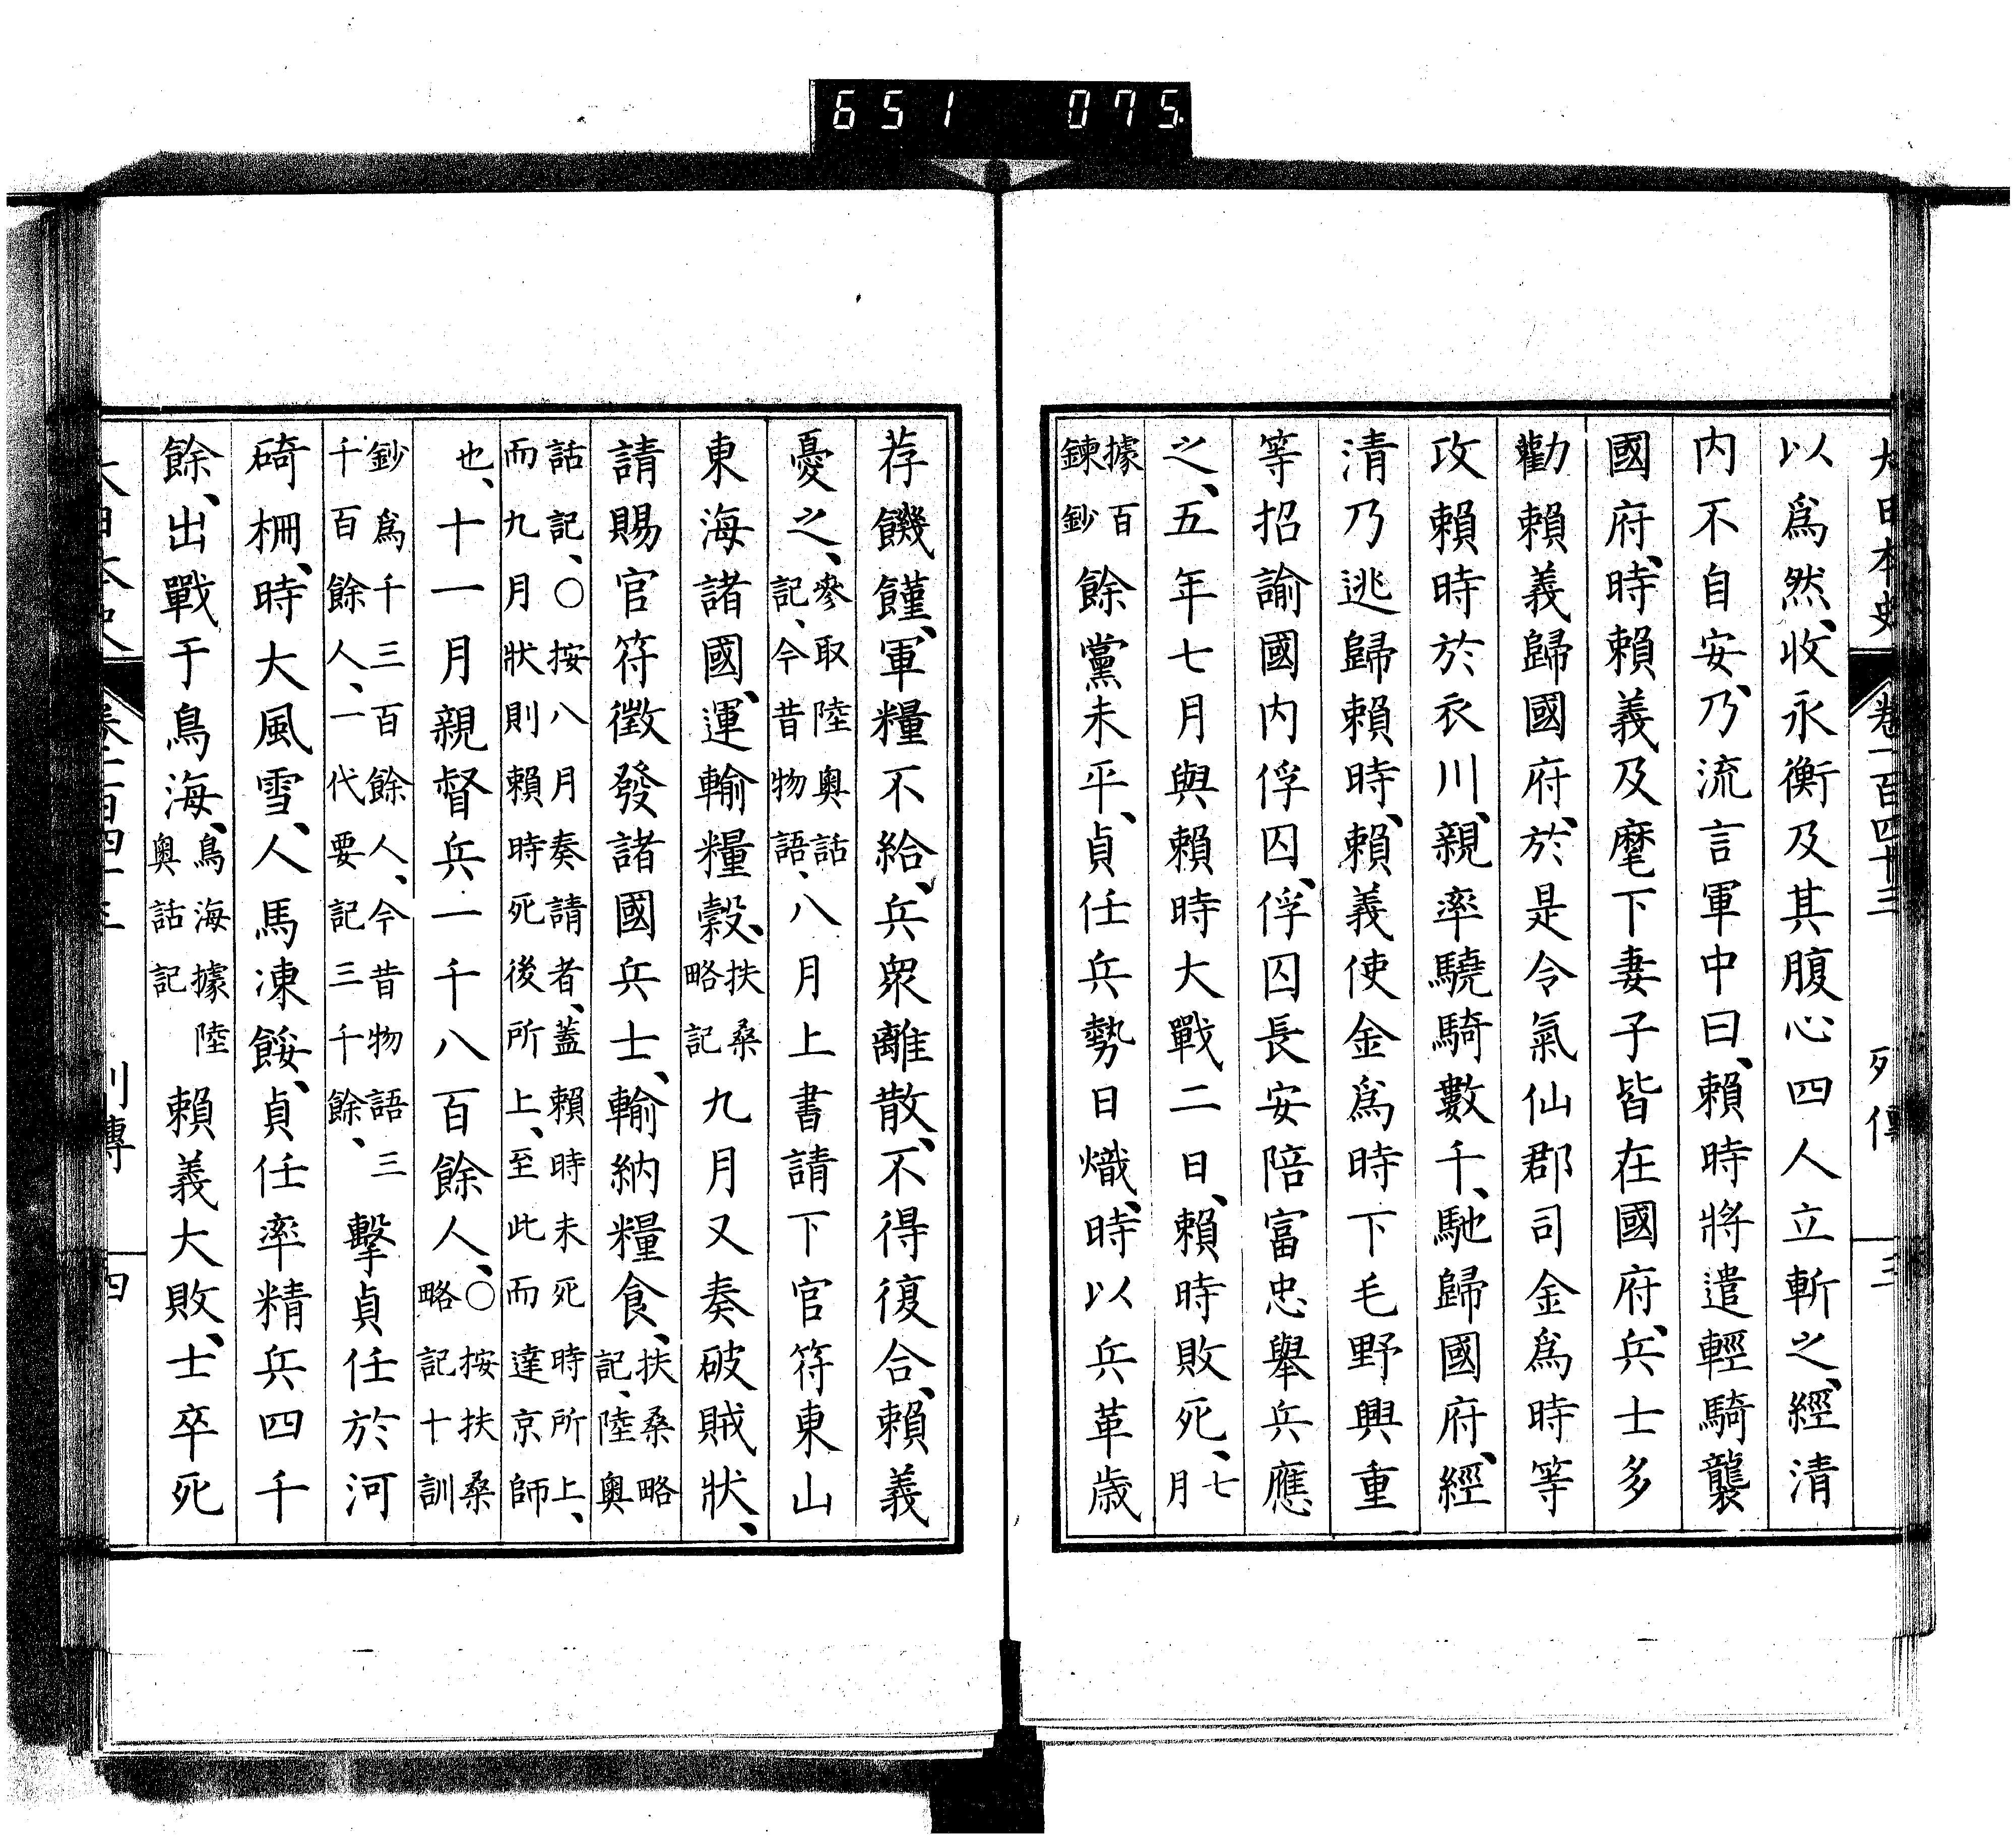 651 075
大日本史 卷一百四十三 列傳 三
以爲然、收永衡及其腹心四人立斬之、經清
内不自安、乃流言軍中曰、賴時將遣輕騎襲
國府、時賴義及麾下妻子皆在國府、兵士多
勸賴義歸國府、於是令氣仙郡司金爲時等
攻賴時於衣川、親率驍騎數千、馳歸國府、經
清乃逃歸賴時、賴義使金爲時下毛野興重
等招諭國内俘囚、俘囚長安陪富忠舉兵應
之、五年七月與賴時大戰二日、賴時敗死、七月
據百鍊鈔餘黨未平、貞任兵勢日熾、時以兵革歳
荐饑饉、軍糧不給、兵衆離散、不得復合、賴義
憂之、參取陸奥話記、今昔物語、八月上書請下官符東山
東海諸國、運輸糧穀、扶桑略記九月又奏破賊狀、
請賜官符徵發諸國兵士、輸納糧食、扶桑略記、陸奧
話記、○按八月奏請者、蓋賴時未死時所上、而九月狀則賴時死後所上、至此而達京師
也、十一月親督兵一千八百餘人、○按扶桑略記十訓
鈔爲千三百餘人、今昔物語三千百餘人、一代要記三千餘、擊貞任於河
碕柵、時大風雪、人馬凍餒、貞任率精兵四千
餘、出戰于鳥海、鳥海據陸奧話記賴義大敗、士卒死
大日本史 卷一百四十三 列傳 四